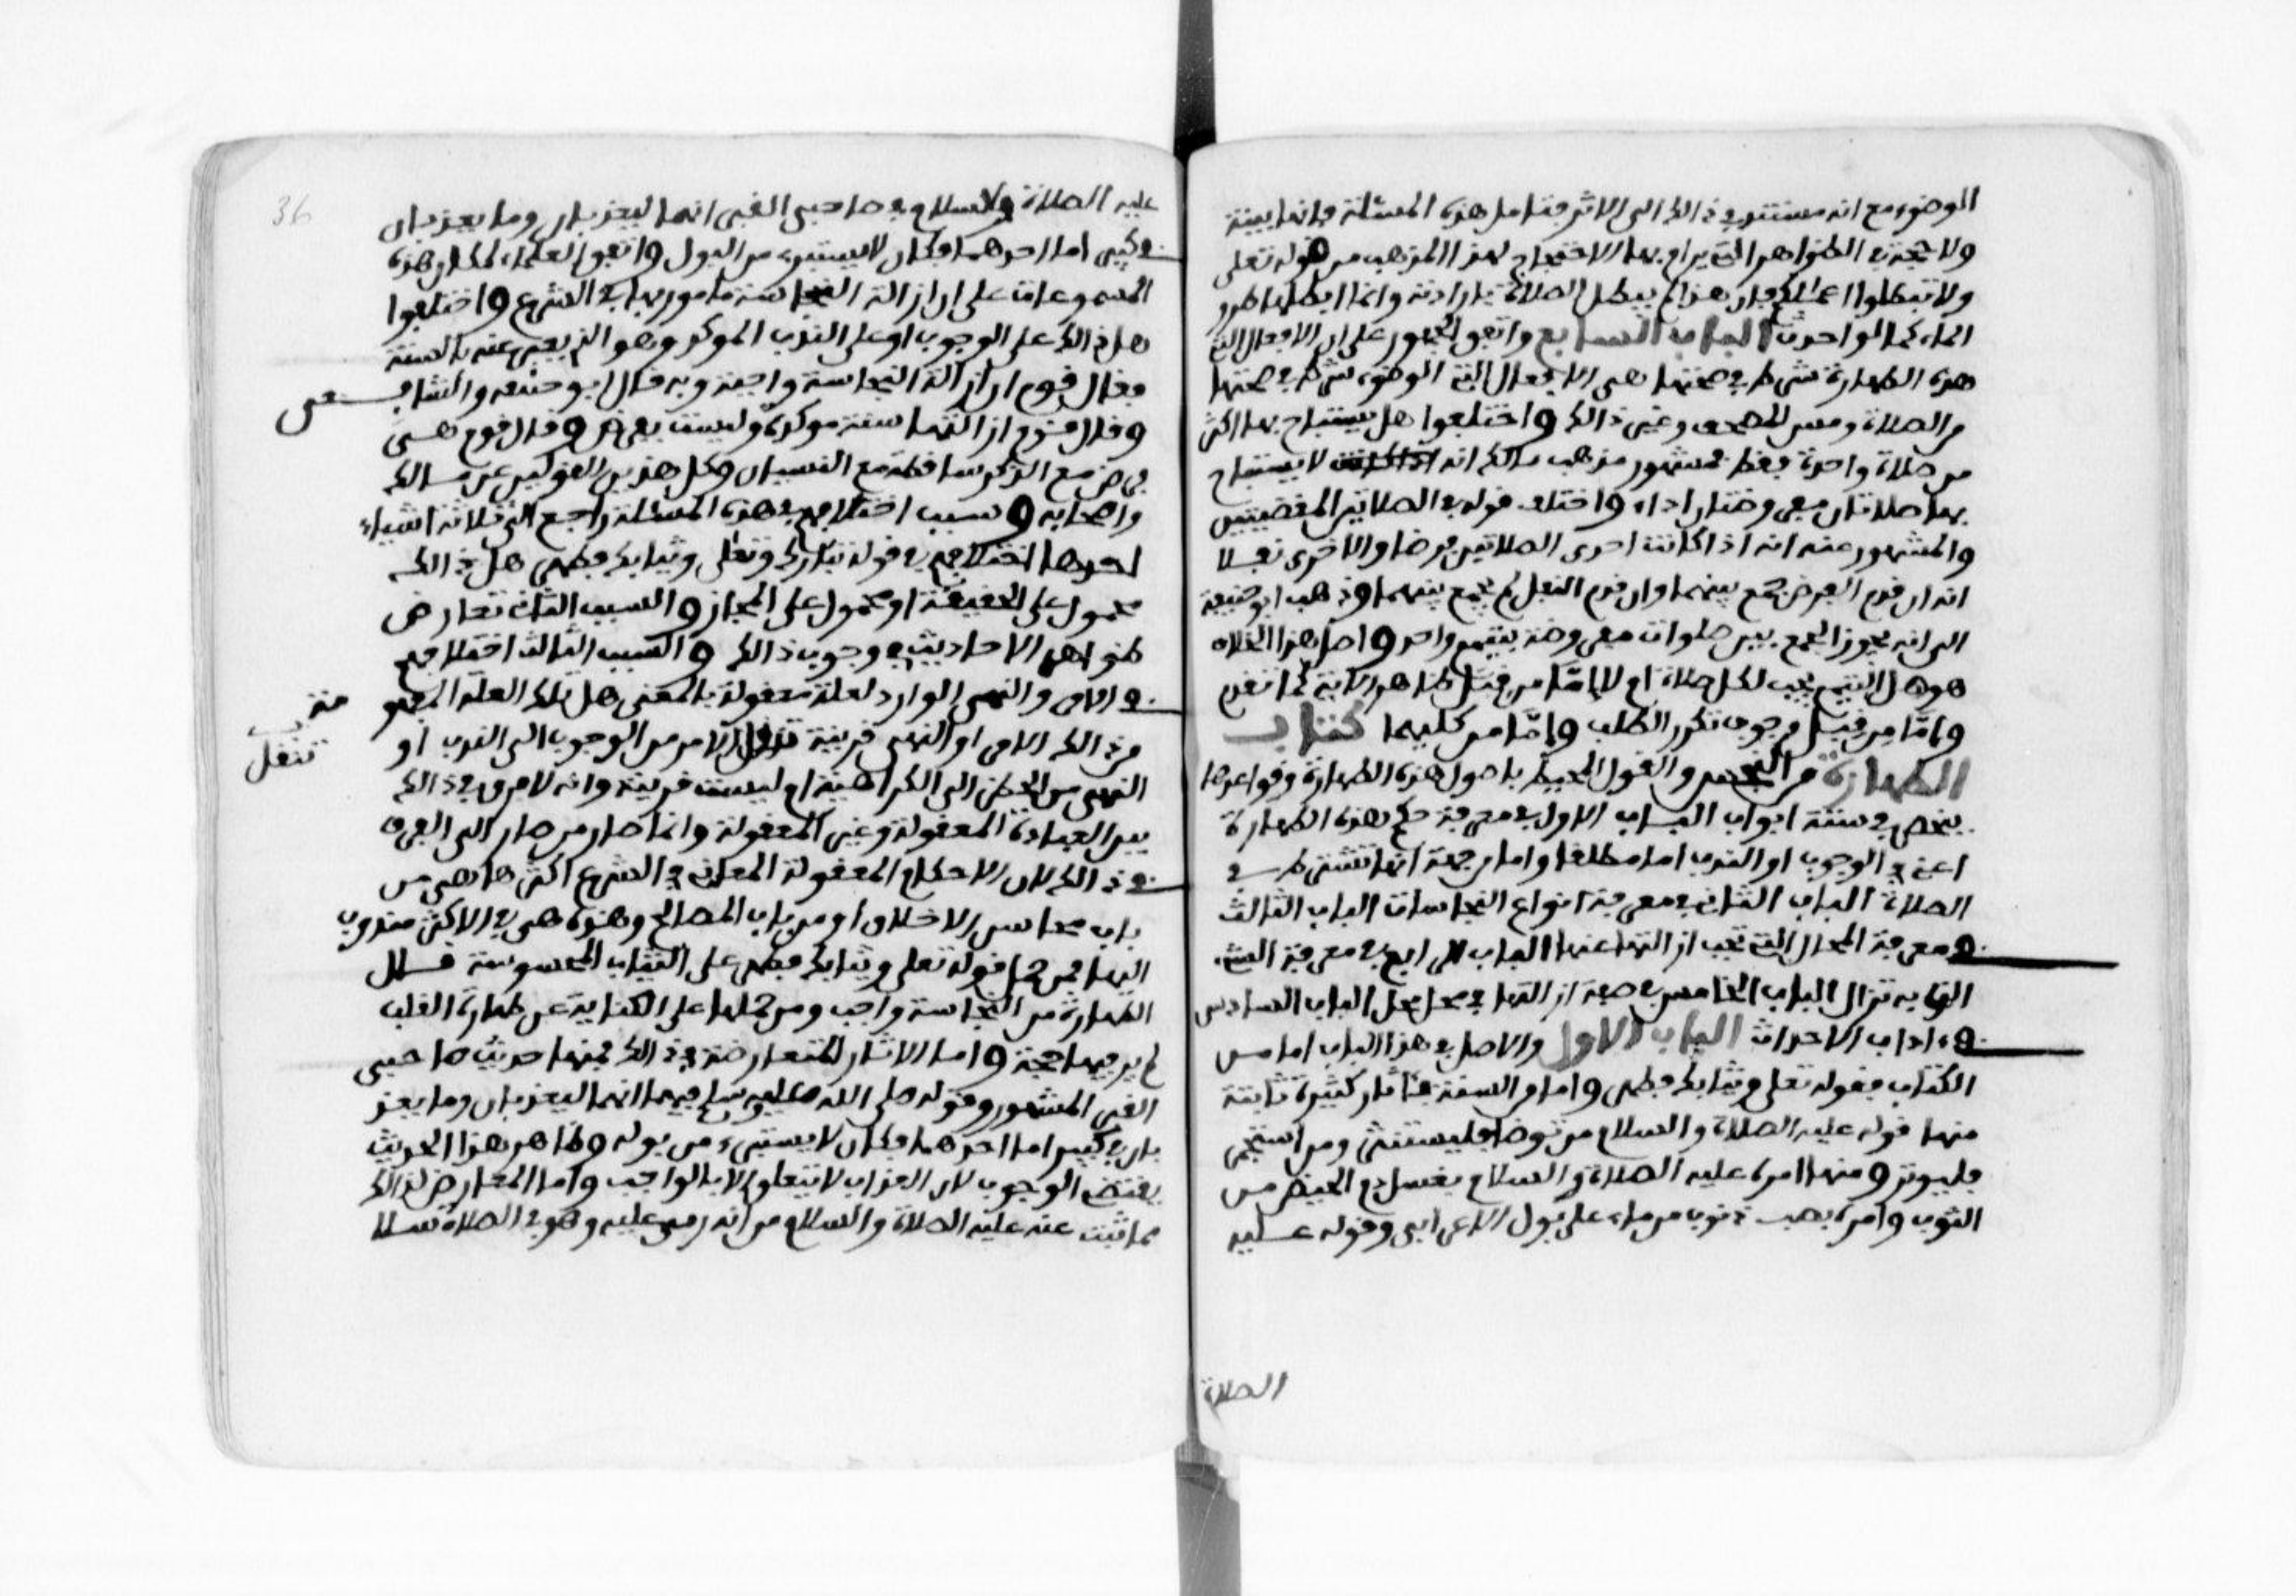 الوضوء مع انه مستتر في ذالك الى الاثر فتامل هذه المسئلة فانها بينة
ولا حجة في الظواهر التي يرام بها الاحتجاج لهذا المذهب من قوله تعلى
ولا تبطلوا اعمالكم فان هذا لم يبطل الصلاة بارادته وانما ابطلها طرو
الماء كما لو احدث الباب السابع واتفق الجمهور على ان الافعال التي
هذه الطهارة شرط في صحتها هي الافعال التي الوضوء شرط في صحتها
من الصلاة ومس المصحف وغير ذالك واختلفوا هل يستباح بها اكثر
من صلاة واحدة فقط فمشهور مذهب مالك انه لا يستباح
بها صلاتان مفروضتان اداء واختلف قوله في الصلاتين المقضيتين
والمشهور عنه انه اذا كانت احدى الصلاتين فرضا والاخرى نفلا
انه ان قدم الفرض جمع بينهما وان قدم النفل لم يجمع بينهما وذهب ابو حنيفة
الى انه يجوز الجمع بين صلوات مفروضة بتيمم واحد واصل هذا الخلاف
هو هل التيمم يجب لكل صلاة ام لا اما من قبل ظاهر الاية كما تقدم
واما من قبل وجوب تكرر الطلب واما من كليهما كتاب
الطهارة من النجس والقول المحيط باصول هذه الطهارة وقواعدها
ينحصر في ستة ابواب الباب الاول في معرفة حكم هذه الطهارة
اعني في الوجوب او الندب اما مطلقا واما من جهة انها تشترط في
الصلاة الباب الثاني في معرفة انواع النجاسات الباب الثالث
في معرفة المحال التي تجب ازالتها عنها الباب الرابع في معرفة الشيء
الذي به تزال الباب الخامس في صفة ازالتها في محل محل الباب السادس
في ءاداب الاحداث الباب الاول والاصل في هذا الباب اما من
الكتاب فقوله تعلى وثيابك فطهر واما من السنة فئاثار كثيرة ثابتة
منها قوله عليه الصلاة والسلام من توضا فليستنثر ومن استجمر
فليوتر ومنها امره عليه الصلاة والسلام بغسل دم الحيض من
الثوب وامره بصب ذنوب من ماء على بول الاعرابي وقوله عليه
الصلاة
36
عليه الصلاة والسلام في صاحبي القبر انهما ليعذبان وما يعذبان
في كبير اما احدهما فكان لا يستبرء من البول واتفق العلماء لمكان هذه
المسموعات على ان ازالة النجاسة مامور بها في الشرع واختلفوا
هل ذالك على الوجوب او على الندب الموكد وهو الذي يعبر عنه بالسنة
فقال قوم ان ازالة النجاسة واجبة وبه قال ابو حنيفة والشافعي
وقال قوم ازالتها سنة موكدة وليست بفرض وقال قوم هي
فرض مع الذكر ساقطة مع النسيان وكل هذين القولين عن مالك
واصحابه وسبب اختلافهم في هذه المسئلة راجع الى ثلاثة اشياء
احدها اختلافهم في قوله تبارك وتعلى وثيابك فطهر هل ذالك
محمول على الحقيقة او محمول على المجاز والسبب الثاني تعارض
ظواهر الاحاديث في وجوب ذالك والسبب الثالث اختلافهم
في الامر والنهي الوارد لعلة معقولة المعنى هل تلك العلة المفهو
مة
من ذالك الامر او النهي قرينة تنقل الامر من الوجوب الى الندب او
تنقل
النهي من الحظر الى الكراهية ام ليست قرينة وانه لا فرق في ذالك
بين العبادة المعقولة وغير المعقولة وانما صار من صار الى الفرق
في ذالك لان الاحكام المعقولة المعاني في الشرع اكثرها هي من
باب محاسن الاخلاق او من باب المصالح وهذه هي في الاكثر مندوب
اليها فمن حمل قوله تعلى وثيابك فطهر على الثياب المحسوسة قال
الطهارة من النجاسة واجب ومن حملها على الكناية عن طهارة القلب
لم ير فيها حجة واما الاثار المتعارضة في ذالك فمنها حديث صاحبي
القبر المشهور وقوله صلى الله عليه وسلم فيهما انهما ليعذبان وما يعذ
بان في كبير اما احدهما فكان لا يستبرء من بوله وظاهر هذا الحديث
يقتضي الوجوب لان العذاب لا يتعلق الا بالواجب واما المعارض لذالك
فما ثبت عنه عليه الصلاة والسلام من انه رمي عليه وهو في الصلاة سلا